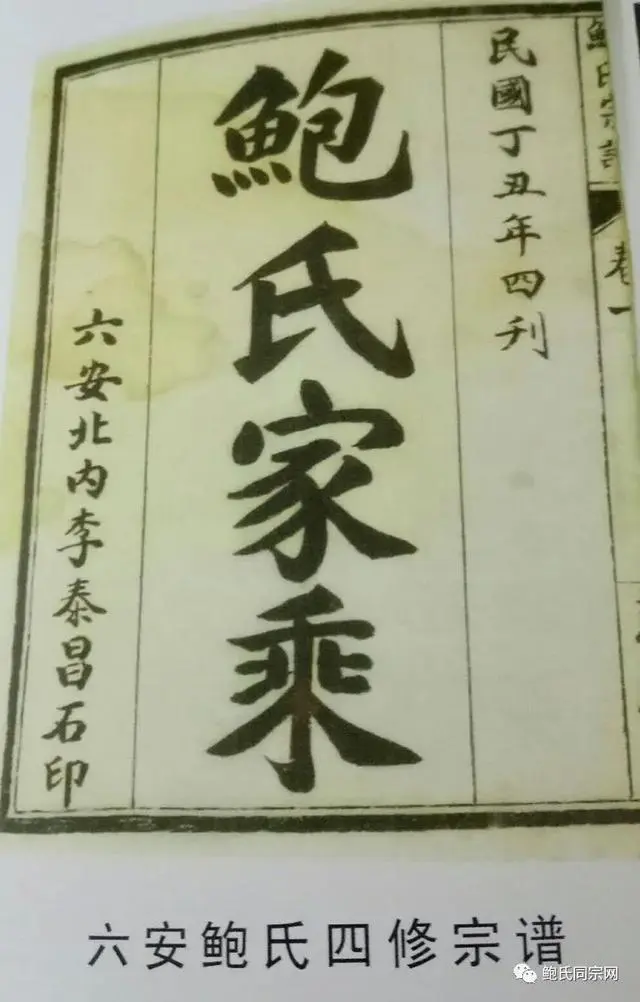 鮑氏宗譜
卷一
民國丁丑年四刋
鮑氏家乘
六安北内李泰昌石印
六安鲍氏四修宗谱
鲍氏同宗网